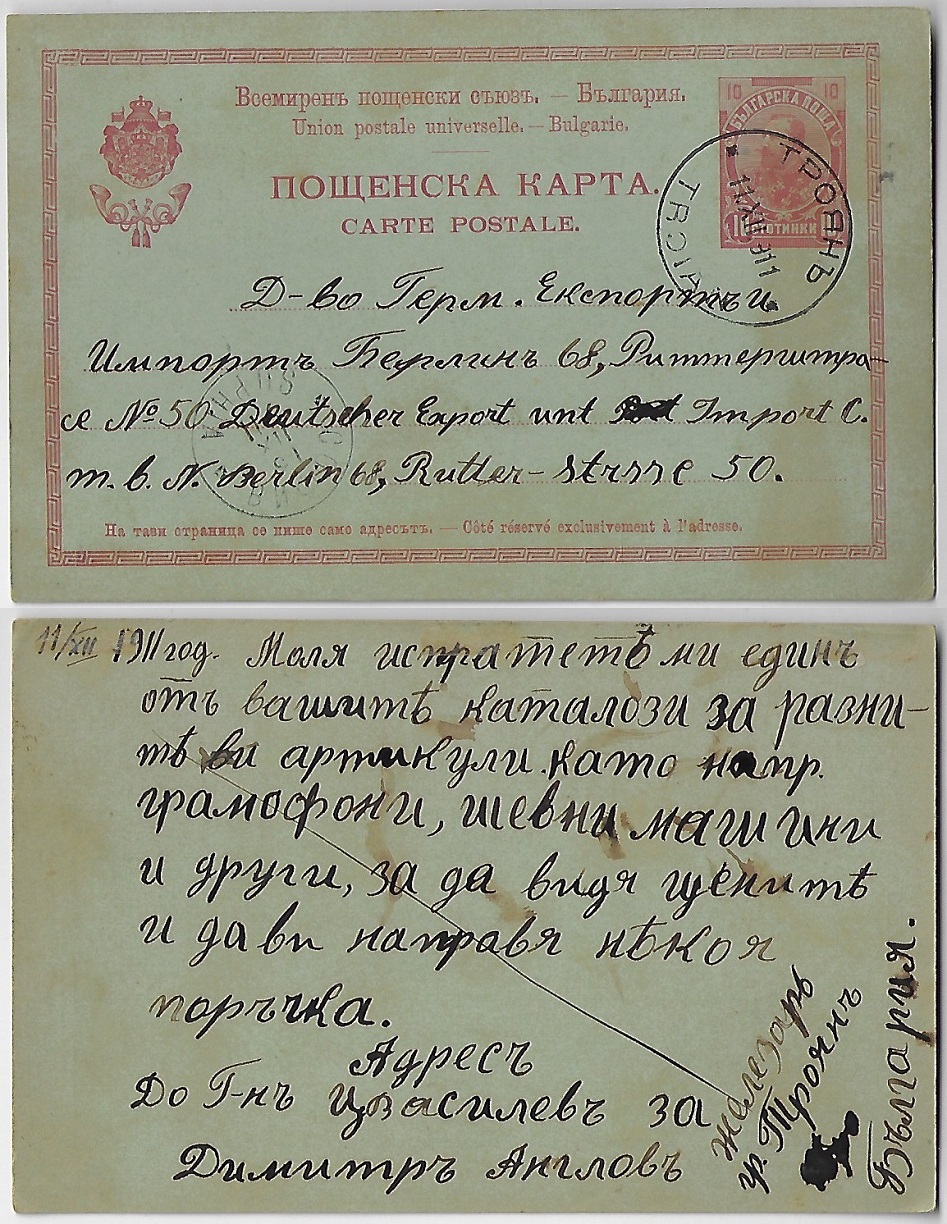 Всемиренъ пощенски съюзъ. — България.
Union postale universelle. — Bulgarie.
ПОЩЕНСКА КАРТА.
CARTE POSTALE.
10 10
БЪЛГАРСКА ПОЩА
10 СТОТИНКИ
ТРОЯНЪ
11.XII.911
Д-во Герм. Експортъ и
Импортъ Берлинъ 68, Риттерштра-
се № 50 Deutscher Export unt Import C.
m. b. N. Berlin 68, Rutter-Strsse 50.
На тази страница се пише само адресътъ. — Côté réservé exclusivement à l'adresse.
11/XII 1911 год. Моля испратетѣ ми единъ
отъ вашитѣ каталози за разни-
тѣ ви артикули като напр.
грамофони, шевни машини
и други, за да видя щенитѣ
и да ви направя нѣкоя
поръчка.
Адресъ
До Г-нъ Цвасилевъ за
Димитръ Англовъ
Железарь
гр. Троянъ
Бълмария.